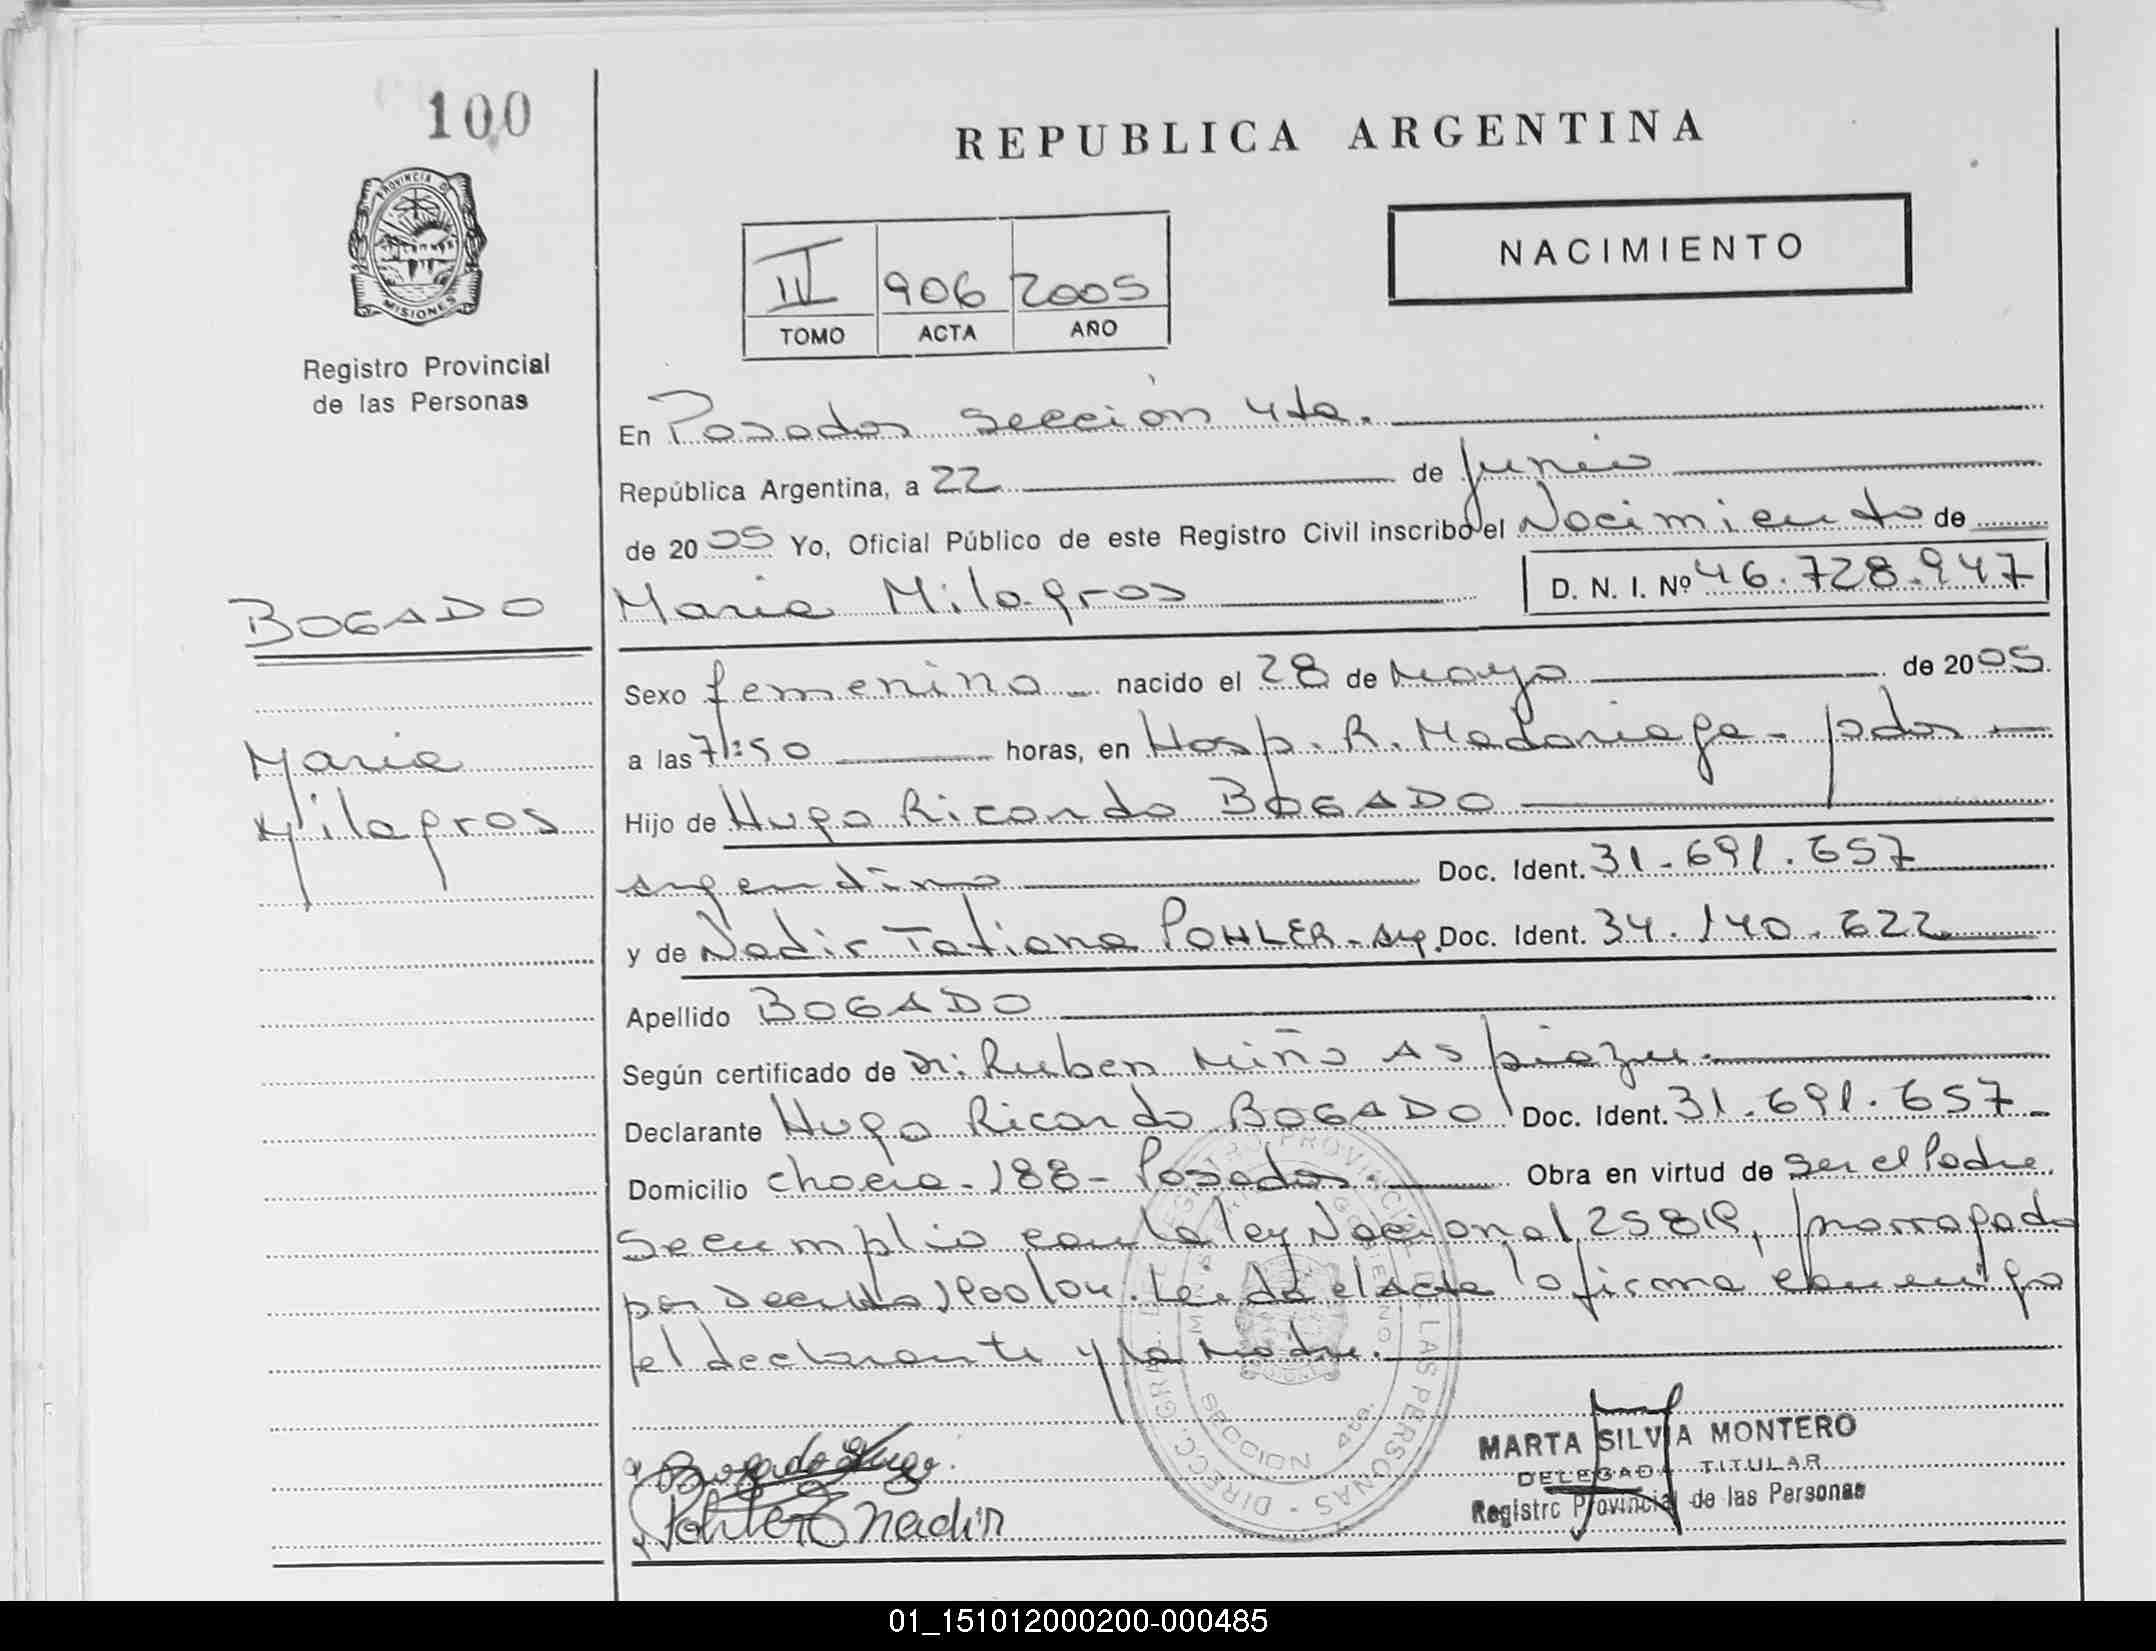 100
PROVINCIA D
MISIONES
Registro Provincial
de las Personas
REPUBLICA ARGENTINA
906 2005
TOMO ACTA AÑO
NACIMIENTO
En Posadas sección 4ta.
República Argentina, a 22 de junio
de 2005 Yo, Oficial Público de este Registro Civil inscribo el Nacimiento de
BOGADO
Maria Milagros D. N. I. Nº 46.728.947
Sexo femenino - nacido el 28 de Mayo de 2005.
Maria
Milagros
a las 7:50 horas, en Hosp. R. Madariaga - pdas -
Hijo de Hugo Ricardo BOGADO
argentino Doc. Ident. 31.691.657
y de Nadir Tatiana POHLER - Arg. Doc. Ident. 34.140.622
Apellido BOGADO
Según certificado de Dr: Ruben Miño Aspiazu.
Declarante Hugo Ricardo BOGADO Doc. Ident. 31.691.657 -
Domicilio chacra - 188 - Posadas. Obra en virtud de ser el Padre.
Se cumplio con la ley Nacional 25819, prorrogada
por Decreto 1900/04. Leida el acta la firma conmigo
el declarante y la madre.
Bogado Hugo.
Pohler Nadir
DIRECC. GRAL. DEL REGISTRO PROVINCIAL DE LAS PERSONAS
SECCION 4ta.
MARTA SILVIA MONTERO
DELEGADA TITULAR
Registro Provincial de las Personas
01_151012000200-000485